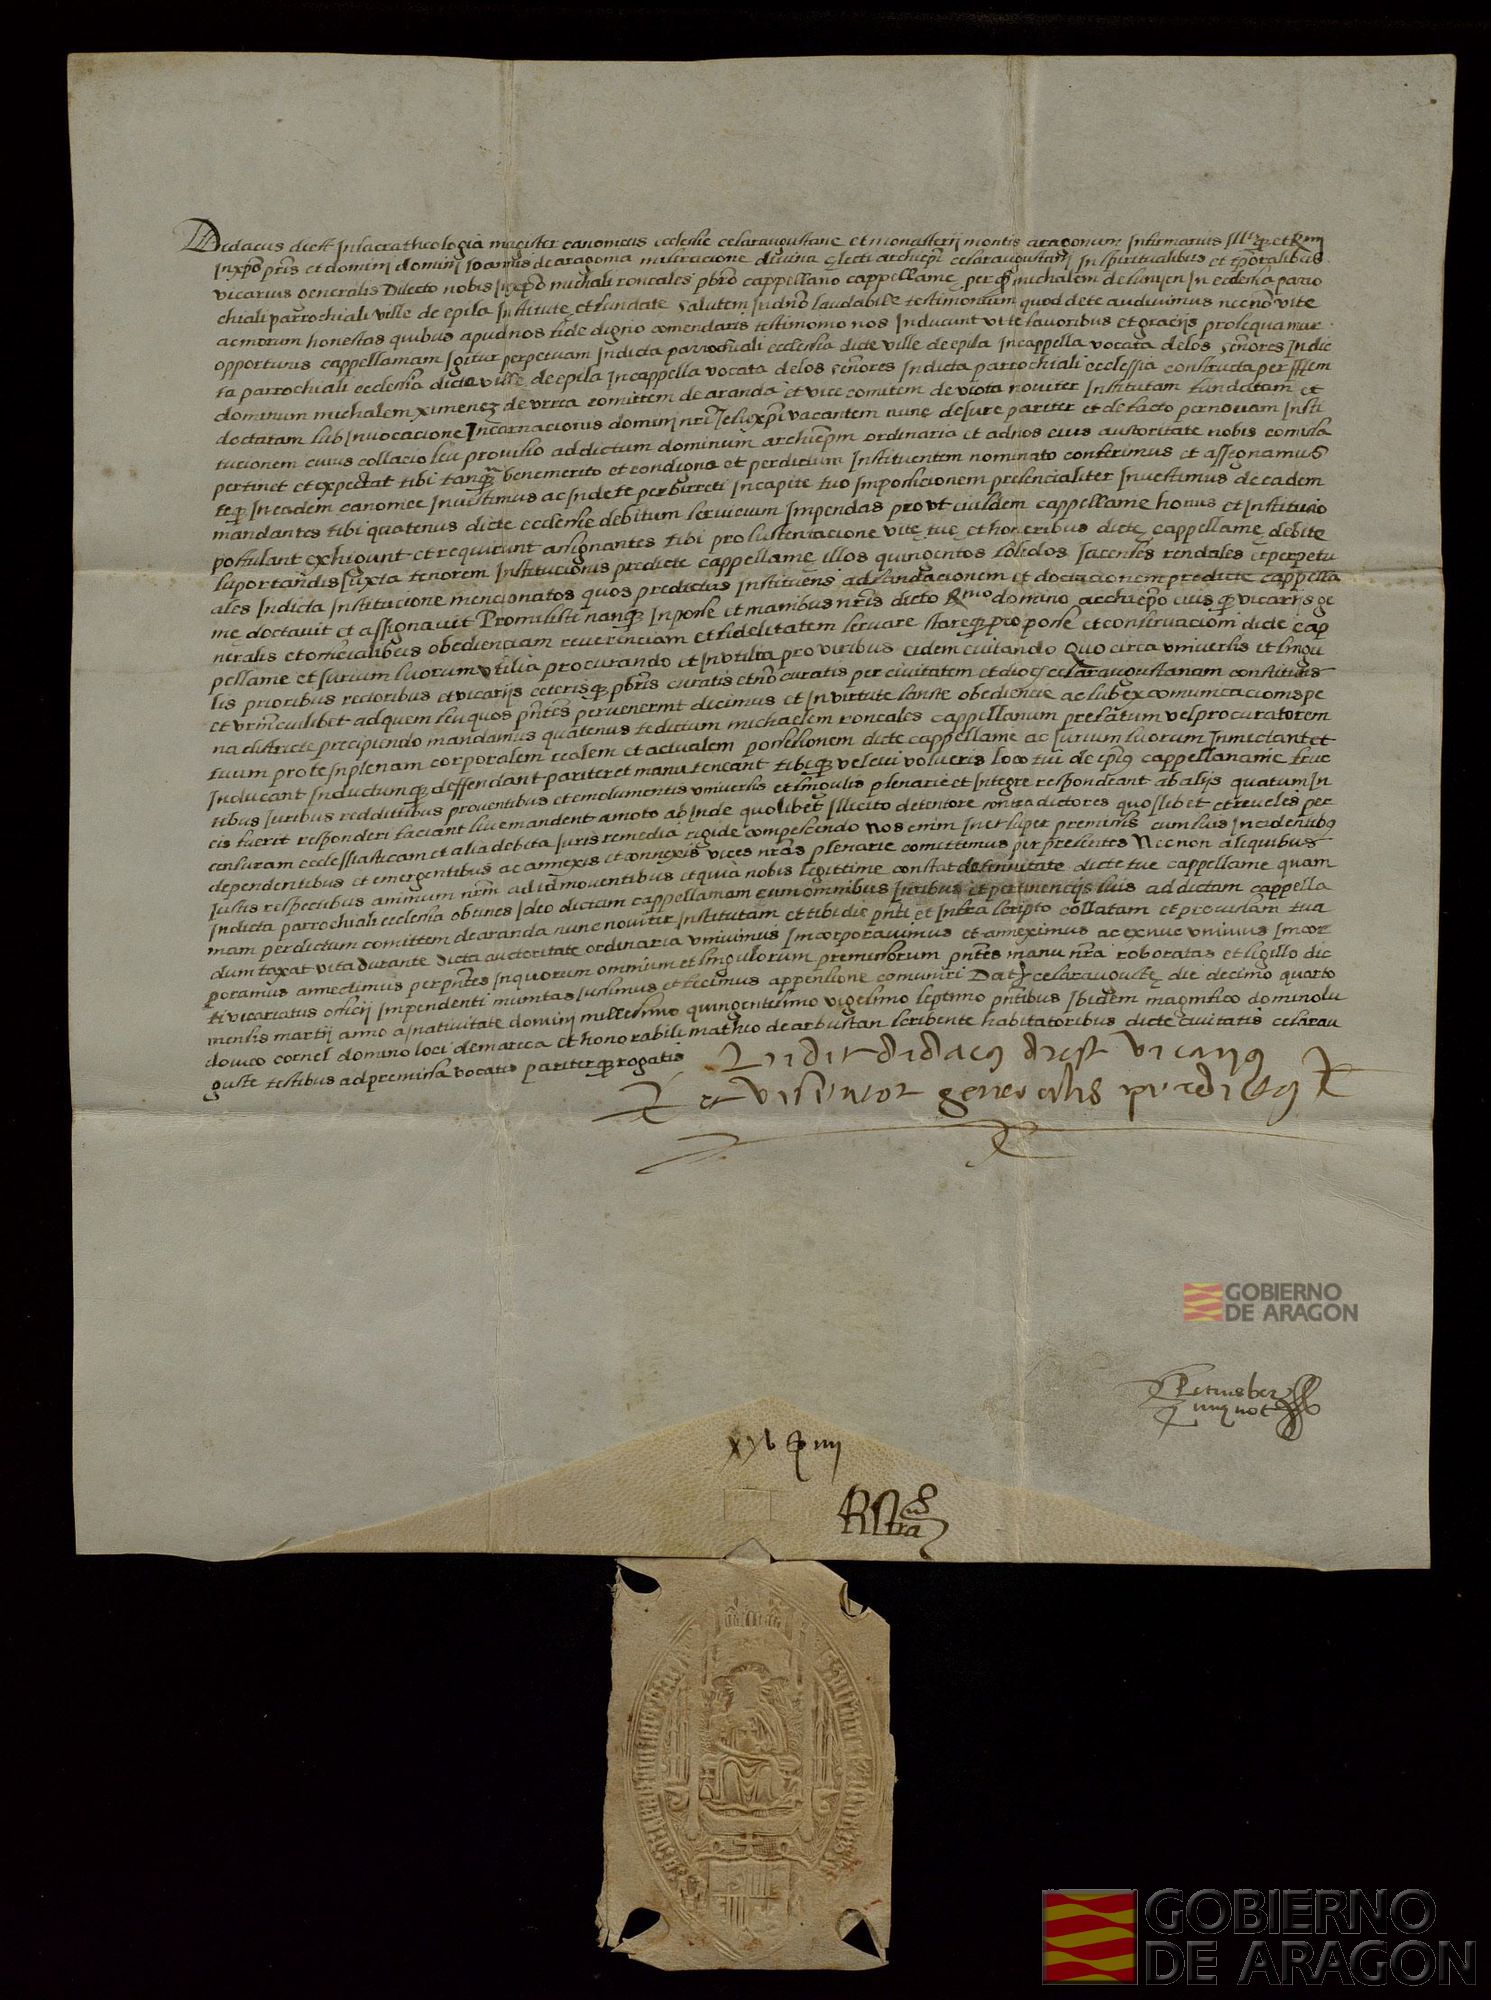 Didacus diest Insacratheologia magister canonicus ecclesie cesaraugustane et monasterij montis aragonum Infirmarius Illᵐⁱ qʒ et Rmi
Inxpo pris et dominj dominj Ioannis de aragonia miseracione divina electi archiepi cesaraugustanj In spiritualibus et tporalibus
vicarius generalis Dilecto nobis Inxpo michali roncales pbro cappellano cappellanie per michalem de lunyen In ecclesia parro
chiali parrochiali ville de epila Institute et fundate salutem In dno laudabile testimonium quod de te audivimus necnon vite
ac morum honestas quibus apud nos fide digno comendaris testimonio nos Inducunt ut te favoribus et gracijs prosequamur
opportunis cappellaniam Igitur perpetuam In dicta parrochiali ecclesia dicte ville de epila In cappella vocata de los señores In dic
ta parrochiali ecclesia dicte ville de epila In cappella vocata de los señores In dicta parrochiali ecclessia constructa per
dominum michalem ximenez de urrea comittem de aranda et vice comitem de viota noviter Institutam fundatam et
doctatam sub Invocacione Incarnacionis dominj nri Jesuxpi vacantem nunc de Iure pariter et de facto per novam Insti
tucionem cuius collacio seu provisio ad dictum dominum archiepm ordinaria et ad nos eius auctoritate nobis comissa
pertinet et expectat tibi tanqʒ benemerito et condigno et per dictum Instituentem nominato conferimus et assignamus
teqʒ In eadem canonice Investimus ac In de te per birreti In capite tuo Imposicionem presencialiter Investimus de eadem
mandantes tibi quatenus dicte ecclesie debitum servicium Impendas prout eiusdem cappellanie honus et Institucio
postulant exhigunt et requirunt assignantes tibi pro sustentacione vite tue et honeribus dicte cappellanie debite
suportandis Iuxta tenorem Institucionis predicte cappellanie illos quingentos solidos Iaccenses rendales et perpetu
ales In dicta Institucione mencionatos quos predictus Instituens ad fundacionem et doctacionem predicte cappella
nie doctavit et assignavit Promisisti nanqʒ In posse et manibus nris dicto Rmo domino archiepo eius qʒ vicarijs ge
neralis et officialibus obedienciam reverenciam et fidelitatem servare stareqʒ pro posse et conservacion dicte cap
pellanie et Iurium suorum utilia procurando et Inutilia pro viribus eidem evitando Quo circa universis et singu
lis prioribus rectoribus et vicarijs ceterisqʒ pbris curatis et no curatis per civitatem et dioc cesaraugustanam constitutis
et vrm cuilibet ad quem seu quos pntes pervenerint dicimus et In virtute sancte obediencie ac sub excomunicacionis pe
na districte precipiendo mandamus quatenus te dictum michaelem roncales cappellanum prefatum vel procuratorem
tuum pro te In plenam corporalem realem et actualem possessionem dicte cappellanie ac Iurium suorum Inmictant et
Inducant Inductumqʒ deffendant pariter et manuteneant tibiqʒ vel cui volueris loco tui de ipius cappellanie fruc
tibus Iuribus reddittibus proventibus et emolumentis universis et singulis plenarie et Integre respondeant ab alijs quatum In
eis fuerit responderi faciant sive mandent amoto ab Inde quolibet Illicito detentore contradictores quoslibet et reveles per
censuram ecclessiasticam et alia debita Iuris remedia rigide compescendo Nos enim In et super premissis cum suis Incidentibus
dependentibus et emergentibus ac annexis et connexis vices nras plenarie comittimus per presentes Necnon aliquibus
Iustis respectibus animum nrm ad id moventibus et quia nobis legittime constat de tenuitate dicte tue cappellanie quam
In dicta parrochiali ecclesia obtines Ideo dictam cappellaniam cum omnibus Iuribus et pertinencijs suis ad dictam cappella
niam per dictum comittem de aranda nunc noviter Institutam et tibi die pnti et Infrascripto collatam et provisam tua
dum taxat vita durante dicta auctoritate ordinaria univimus Incorporavimus et annexmus ac ex nuc unimus Incor
poramus annectimus per pntes In quorum omnium et singulorum premissorum pntes manu nra roboratas et sigillo dic
ti vicariatus officij Impendenti munitas Iussimus et fecimus appensione comuniri Dat cesarauguste die decimo quarto
mensis martij anno a nativitate dominj millessimo quingentessimo vigesimo septimo pntibus Ibidem magnifico domino lu
dovico cornel domino loci de mareca et honorabili matheo de arbustan scribente habitatoribus dicte civitatis cesarau
guste testibus ad premissa vocatis pariterqʒ rogatis
Vidit didacus diest vicarius
et visitator generalis predictus
Petrus ber
not
xvb iiij
Rtra
GOBIERNO
DE ARAGON
GOBIERNO
DE ARAGON